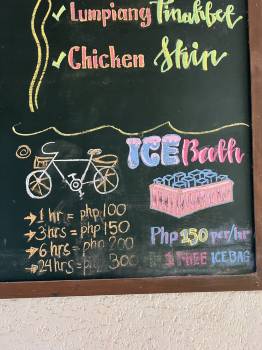 ✓ Lumpiang Pinakbet
✓ Chicken Skin
ICE Bath
→ 1 hr = php 100
→ 3 hrs = php 150
→ 6 hrs = php 200
→ 24 hrs = php 300
Php 150 per/hr
3 FREE ICE BAG